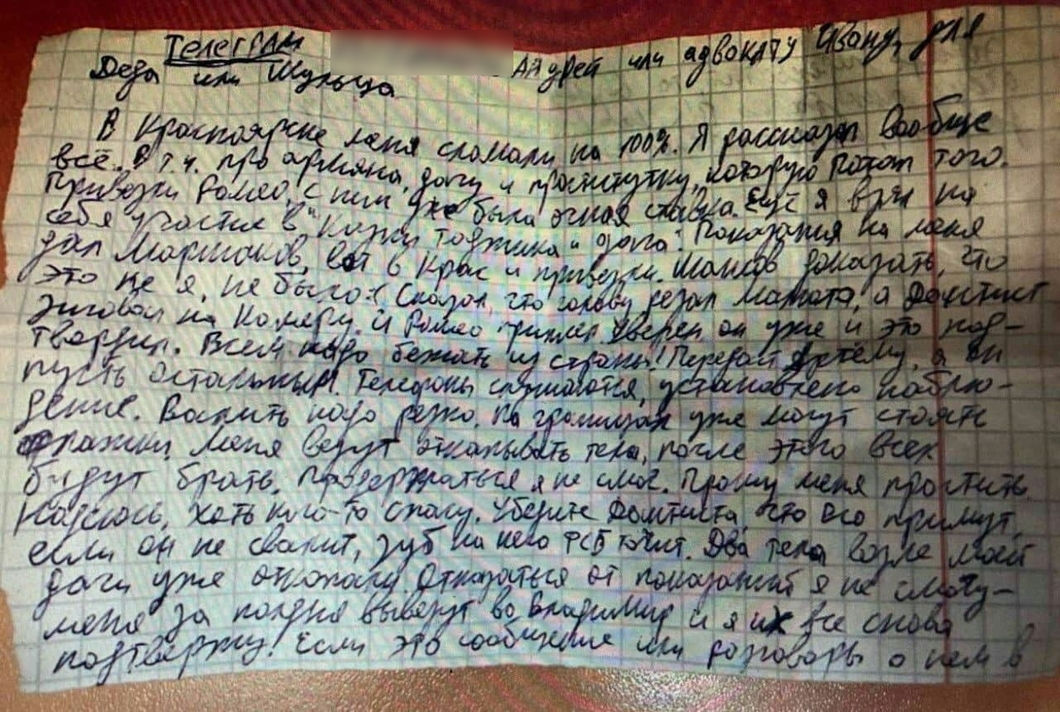 Телеграм Андрей или адвокату Ивану, для
Деда или Мульца
В Красноярске меня сломали на 100%. Я рассказал вообще
всё. В т.ч. про армяна, дачу и проститутку, которую потом того.
Привезли Ромео, с ним уже была очная ставка. Ещё я взял на
себя участие в "Казни таджика и дага". Показания на меня
дал Маршаков, вот в Крас и привезли. Шансов доказать, что
это не я, не было. Сказал, что голову резал Мамота, а Дантист
зиговал на камеру. И Ромео уверен он уже и это под-
твердил. Всем надо бежать из страны! Передай Артёму, а он
пусть остальным. Телефоны слушаются, установлено наблю-
дение. Валить надо резко. На границах уже могут стоять
флажки. Меня везут откапывать тела, после этого всех
будут брать. Продержаться я не смог. Прошу меня простить.
Надеюсь, хоть кого-то спасу. Уберите Дантиста, его примут,
если он не свалит, зуб на него ФСБ точит. Два тела возле моей
дачи уже откопали. Отказаться от показаний я не смогу -
меня за полдня вывезут во Владимир и я их все снова
подтвержу! Если это сообщение или разговоры о нем в